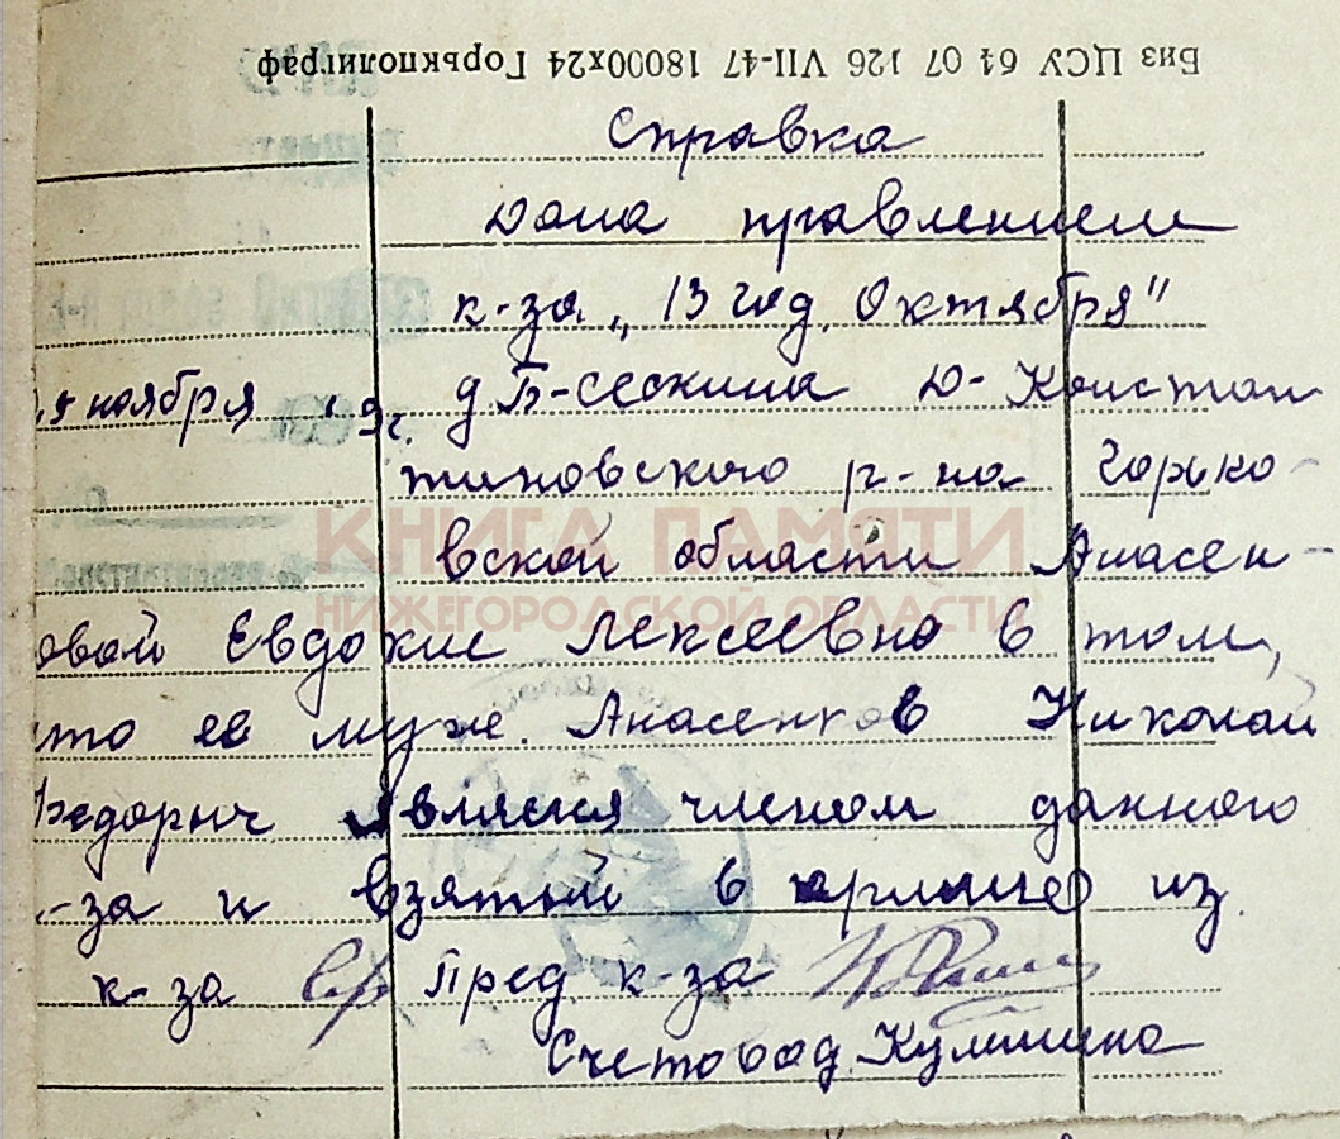 Биз ЦСУ 64 07 126 VII-47 18000х24 Горькполиграф
Справка
Дана правлением
к-за „13 год. Октября"
ноября
д. Б-Сескина Д-Констан
тиновского р-на Горько-
вской области Анасен-
овой Евдокие Лексеевно в том,
что ее муж. Анасенков Николай
Федорыч являеся членом данного
-за и взятый в армию из
к-за Пред к-за
Счетовод Кульпина
КНИГА ПАМЯТИ
НИЖЕГОРОДСКОЙ ОБЛАСТИ